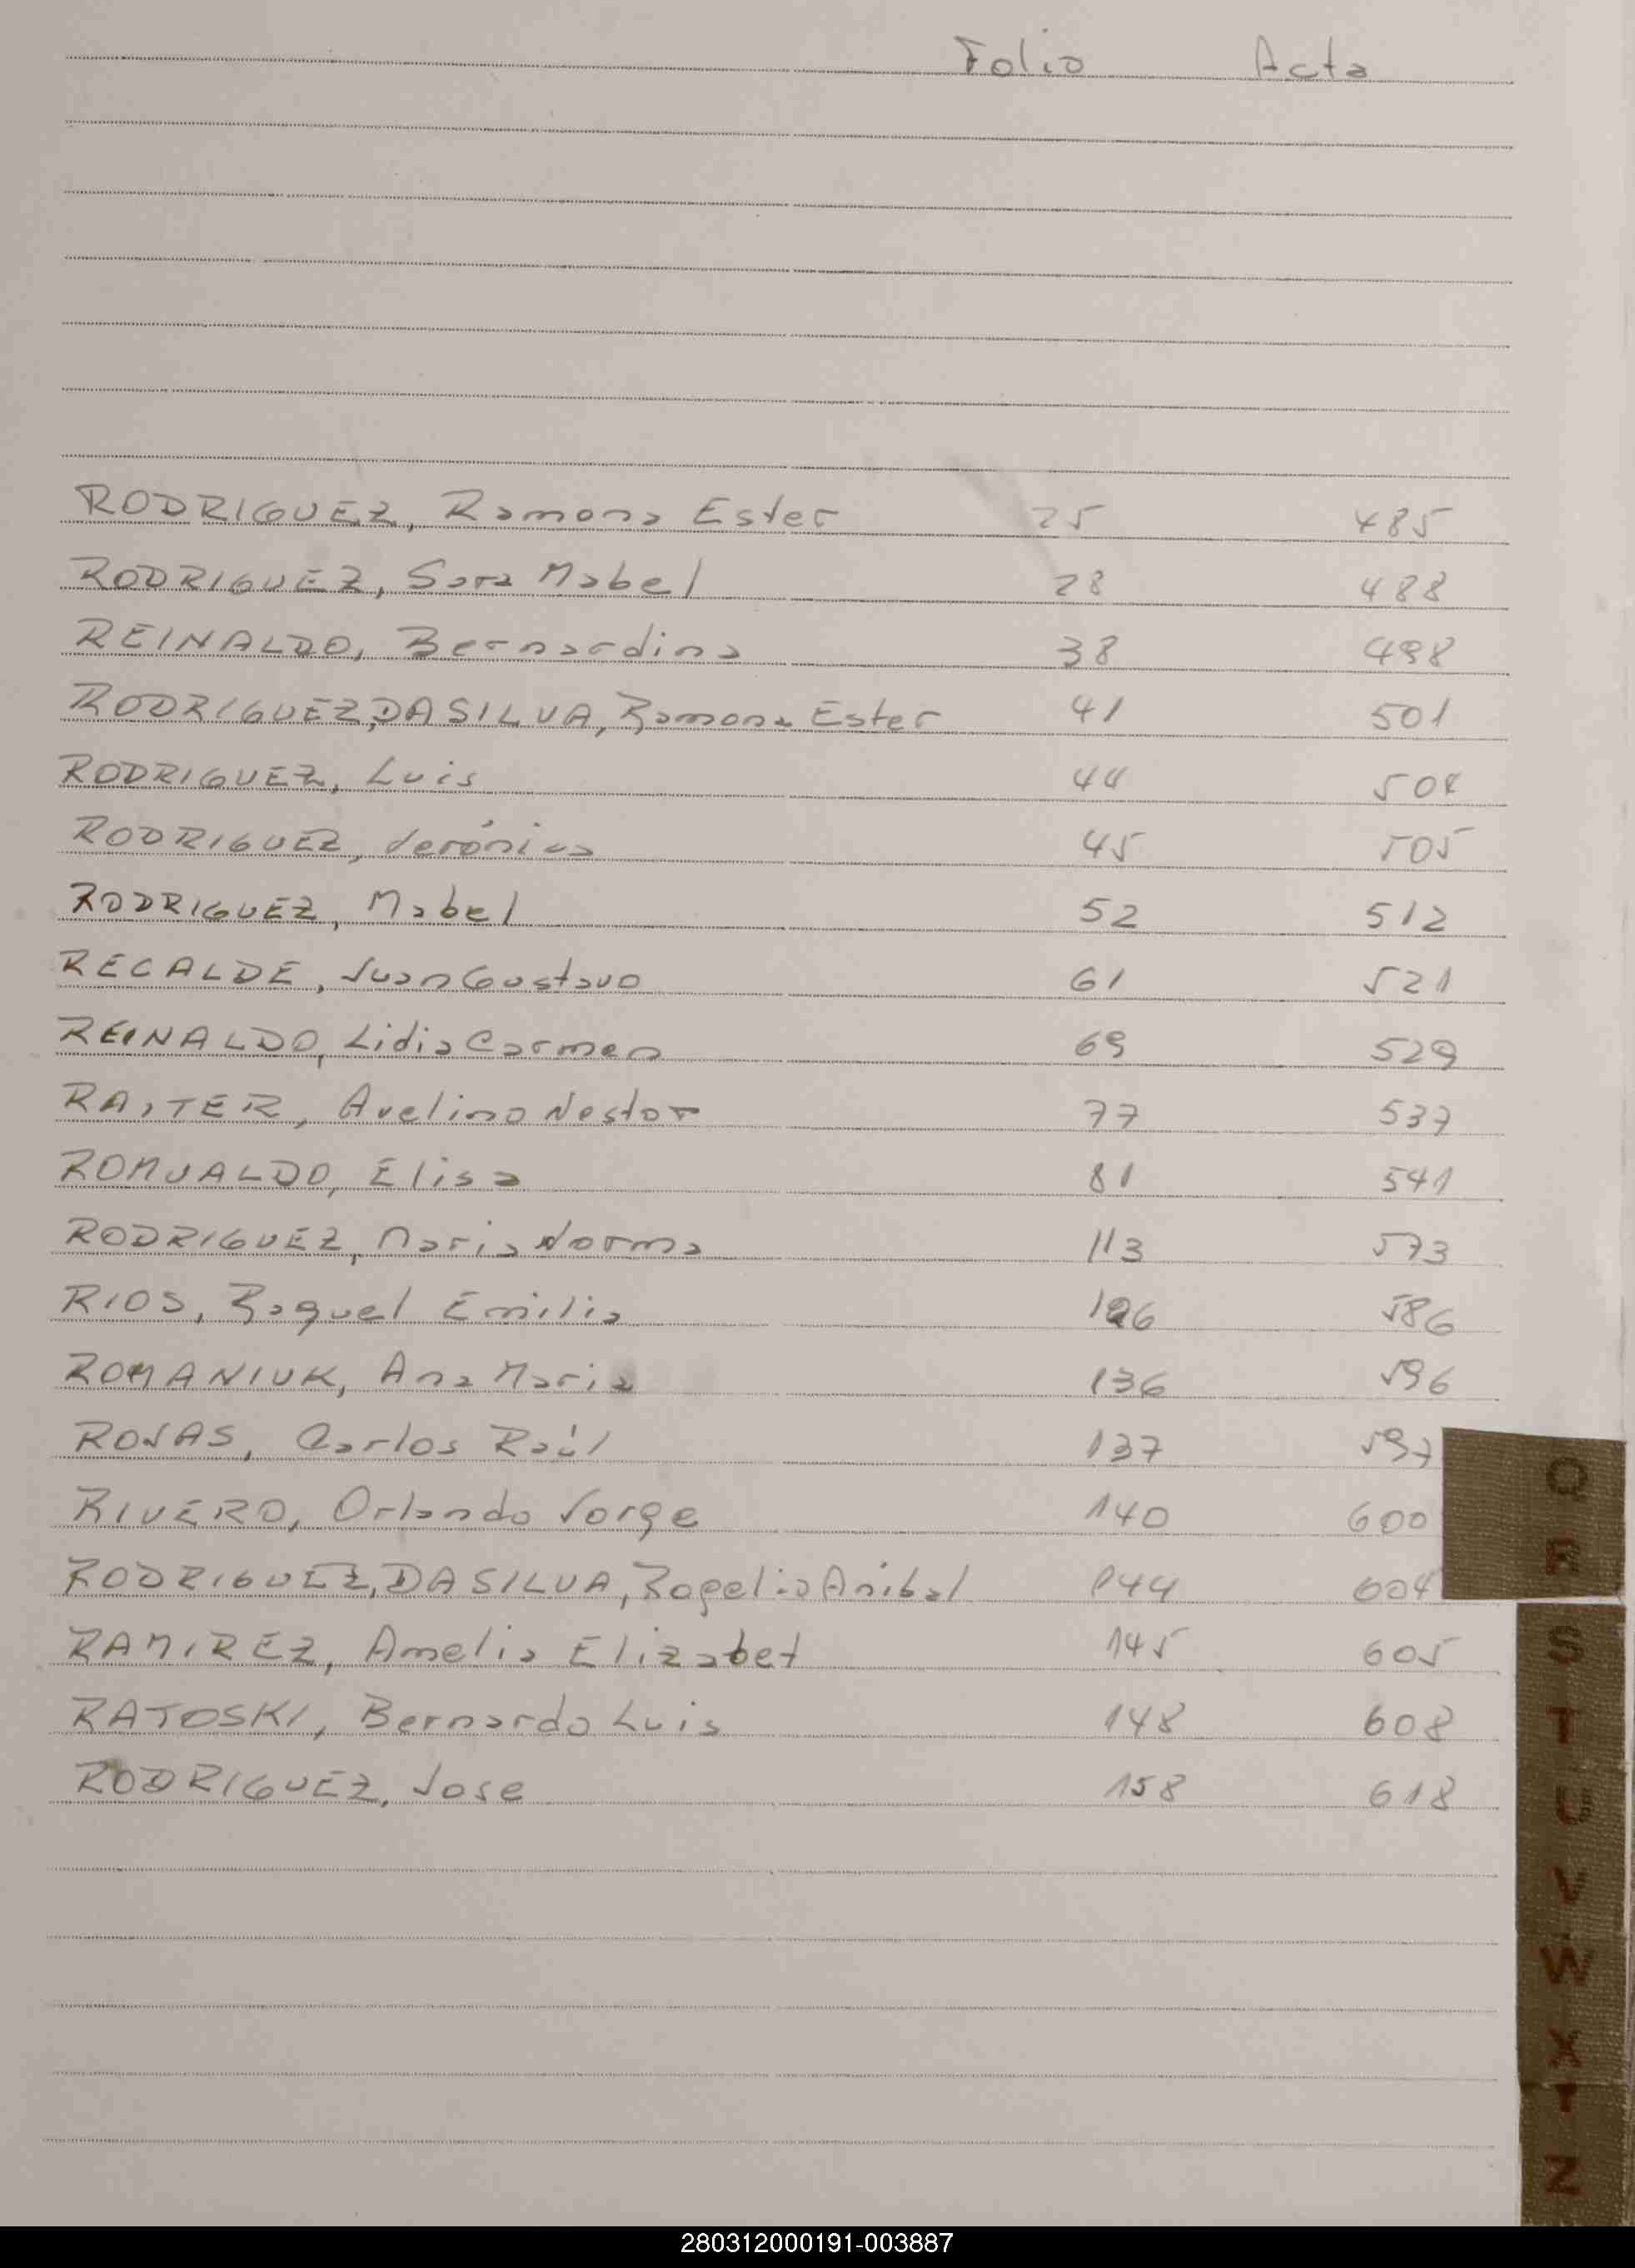 Folio Acta
RODRIGUEZ, Ramona Ester 25 485
RODRIGUEZ, Sara Mabel 28 488
REINALDO, Bernardina 38 498
RODRIGUEZ,DASILVA, Ramona Ester 41 501
RODRIGUEZ, Luis 44 504
RODRIGUEZ, Verónica 45 505
RODRIGUEZ, Mabel 52 512
RECALDE, Juan Gustavo 61 521
REINALDO, Lidia Carmen 69 529
RAITER, Avelino Nestor 77 537
ROMUALDO, Elisa 81 541
RODRIGUEZ, Maria Norma 113 573
RIOS, Raquel Emilia 126 586
ROMANIUK, Ana Maria 136 596
ROJAS, Carlos Raúl 137 597
RIVERO, Orlando Jorge 140 600
RODRIGUEZ,DASILVA, Rogelio Anibal 144 604
RAMIREZ, Amelia Elizabet 145 605
RATOSKI, Bernardo Luis 148 608
RODRIGUEZ, Jose 158 618
Q
R
S
T
U
V
W
X
Y
Z
280312000191-003887